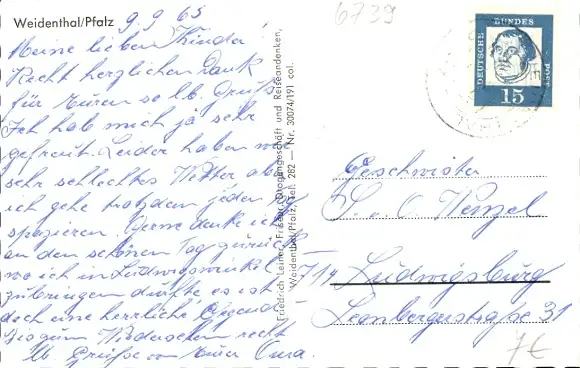 Weidenthal/Pfalz 9.9.65
Meine lieben Kinder
Recht herzlichen Dank
für Euren so lb. Gruß.
Ich hab mich ja sehr
gefreut. Leider haben wir
sehr schlechtes Wetter aber
ich gehe trotzdem jeden
spazieren. Gerne denke ich
an den schönen Tag zurück
wo ich in Ludwigswinkel
zubringen durfte, es ist
doch eine herrliche Gegend
Bis zum Wiedersehen recht
lb. Grüße von Eurer Oma.
Friedrich Leiner, Drogengeschäft und Reiseandenken,
Weidenthal/Pfalz, Tel. 282 — Nr. 30074/191 col.
6739
DEUTSCHE
BUNDES
POST
15
Geschwister
S. u. O. Wenzel
714 Ludwigsburg
Leonbergerstraße 31
7€